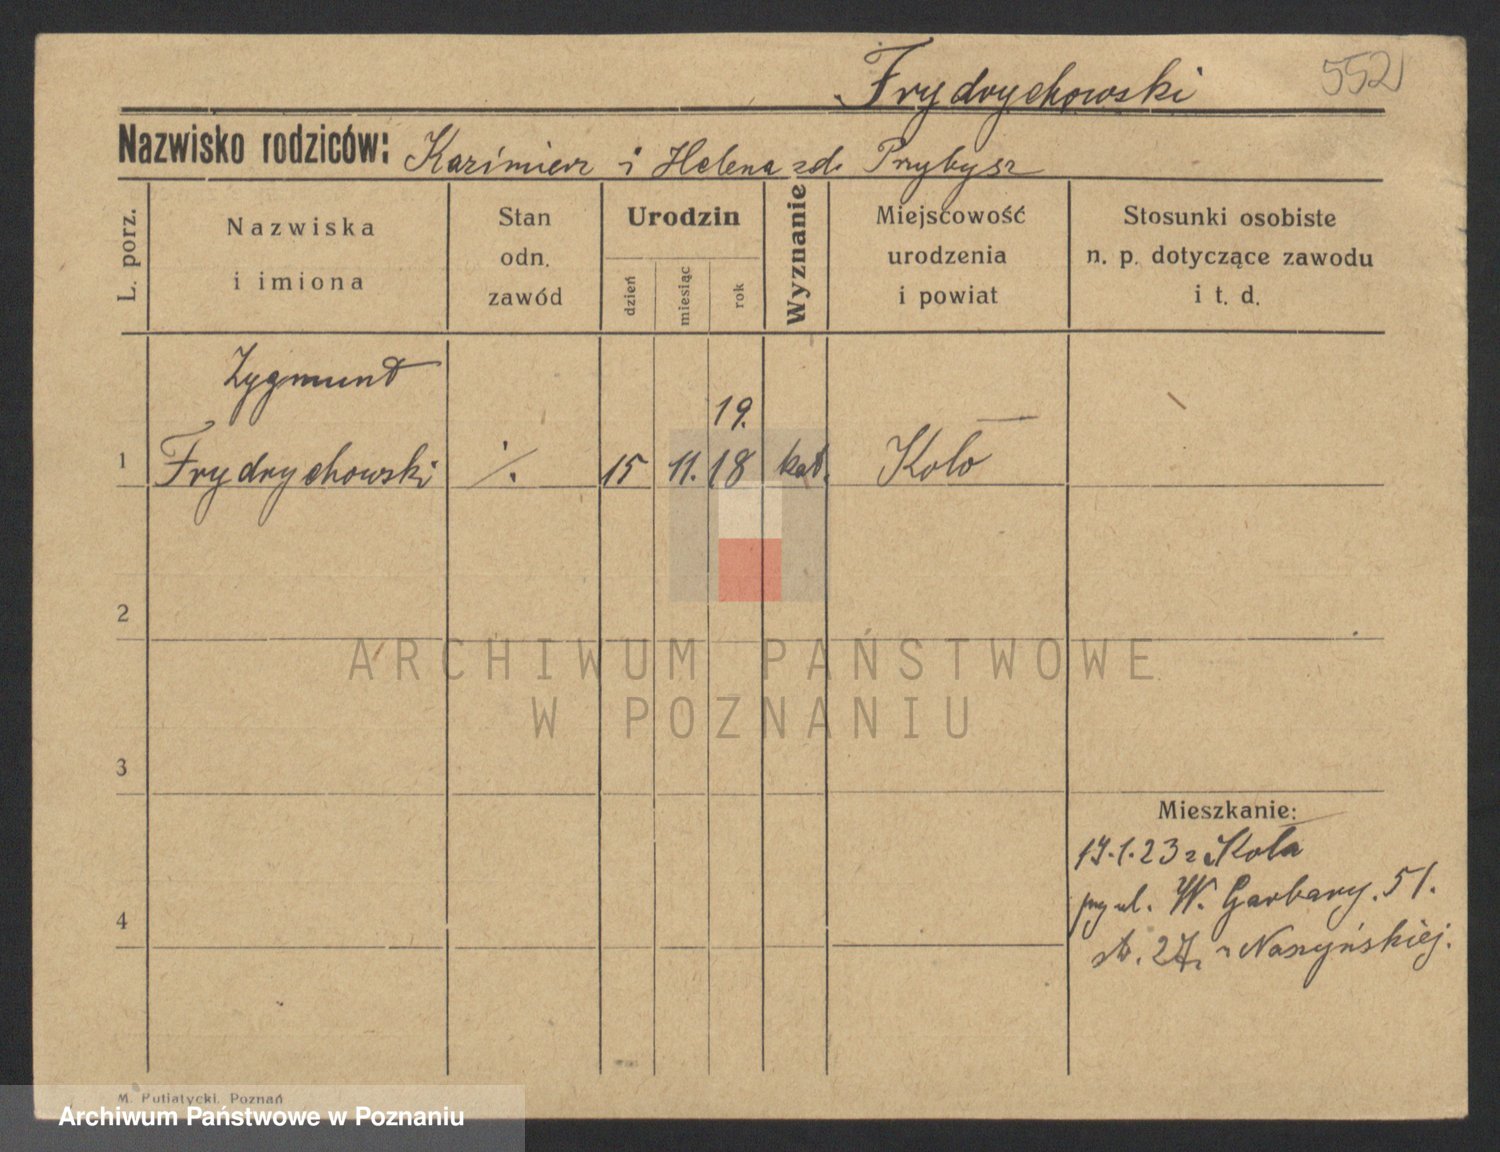 Frydrychowski
552
Nazwisko rodziców: Kazimierz i Helena zd. Przybysz
L. porz.
Nazwiska
i imiona
Stan
odn.
zawód
Urodzin
dzień
miesiąc
rok
Wyznanie
Miejscowość
urodzenia
i powiat
Stosunki osobiste
n. p. dotyczące zawodu
i t. d.
Zygmunt
19.
1 Frydrychowski ·/. 15 11. 18 kat. Koło
2
ARCHIWUM PAŃSTWOWE
W POZNANIU
3
Mieszkanie:
17.1.23 z Koła
przy ul. W. Garbary. 51.
4
Naszyńskiej.
M. Putiatycki, Poznań
Archiwum Państwowe w Poznaniu